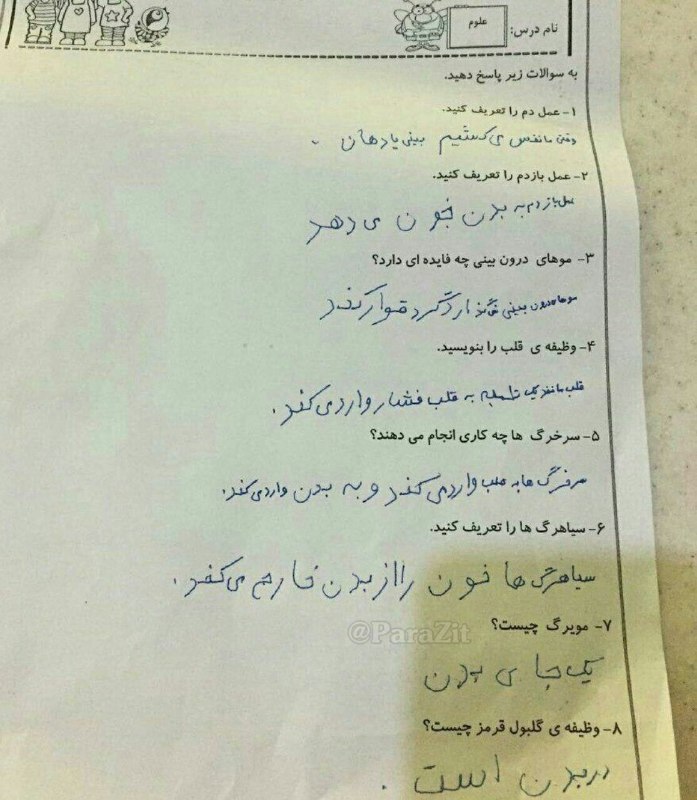 نام درس:
علوم
به سوالات زیر پاسخ دهید.
۱- عمل دم را تعریف کنید.
وقتی ما نفس می کشیم بینی یا دهان .
۲- عمل بازدم را تعریف کنید.
عمل بازدم به بدن خون می دهد
۳- موهای درون بینی چه فایده ای دارد؟
موهای درون بینی
۴- وظیفه ی قلب را بنویسید.
قلب مانند یک تلمبه به قلب فشار وارد می کند .
۵- سرخرگ ها چه کاری انجام می دهند؟
سرخرگ ها به قلب وارد می کند و به بدن وارد می کند .
۶- سیاهرگ ها را تعریف کنید.
سیاهرگ ها خون را از بدن خارج می کند .
@ParaZit
۷- مویرگ چیست؟
یک جا ی بدن
۸- وظیفه ی گلبول قرمز چیست؟
در بدن است .